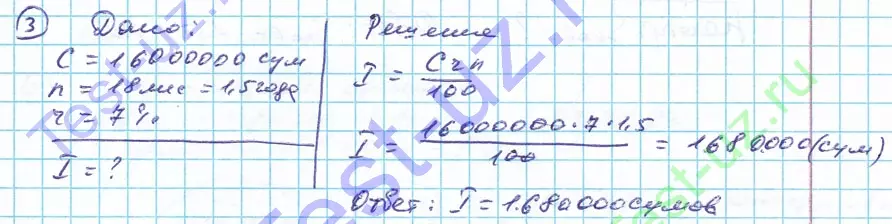 ③ Дано:
C = 16000000 сум
n = 18 мес = 1,5 года
r = 7%
I = ?
Решение
I = Crn / 100
I = 16000000 · 7 · 1,5 / 100 = 1680.000 (сум)
Ответ: I = 1.680000 сумов
Test-uz.ru
Test-uz.ru
Test-uz.ru